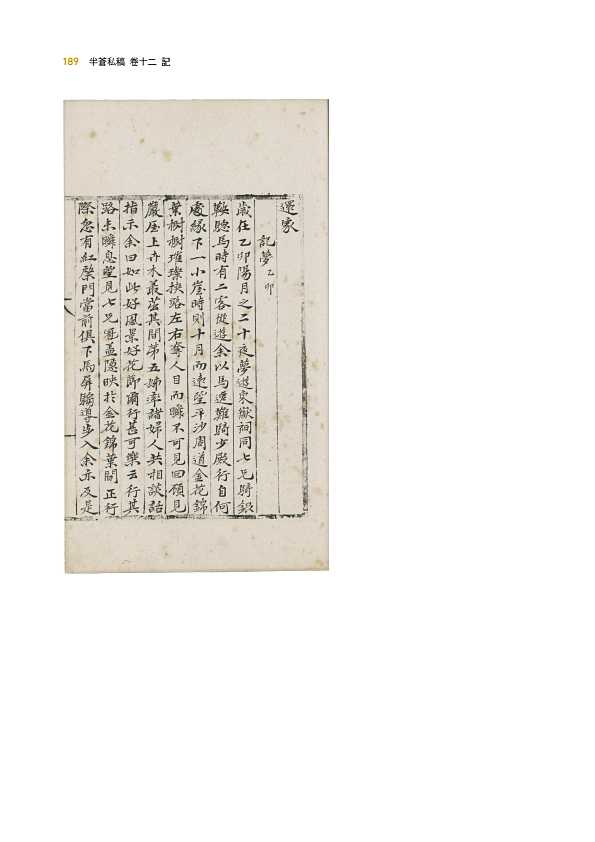 189 半蒼私稿 卷十二 記
還家
記夢 乙卯
歲在乙卯陽月之二十夜夢遊東嶽祠同七兄騎銀
鞍驄馬時有二客從遊余以馬逸難騎少殿行自何
處緣下一小崖時則十月而遠望平沙周道金花錦
葉樹樹璀璨挾路左右奪人目而瞬不可見回顧見
巖崖上卉木叢茁其間第五姊率諸婦人共相談話
指示余曰如此好風景好花節爾行甚可樂云行其
路未瞬息望見七兄冠盖隱映於金花錦葉間正行
際忽有紅檠門當前俱下馬屏騶導步入余亦及是